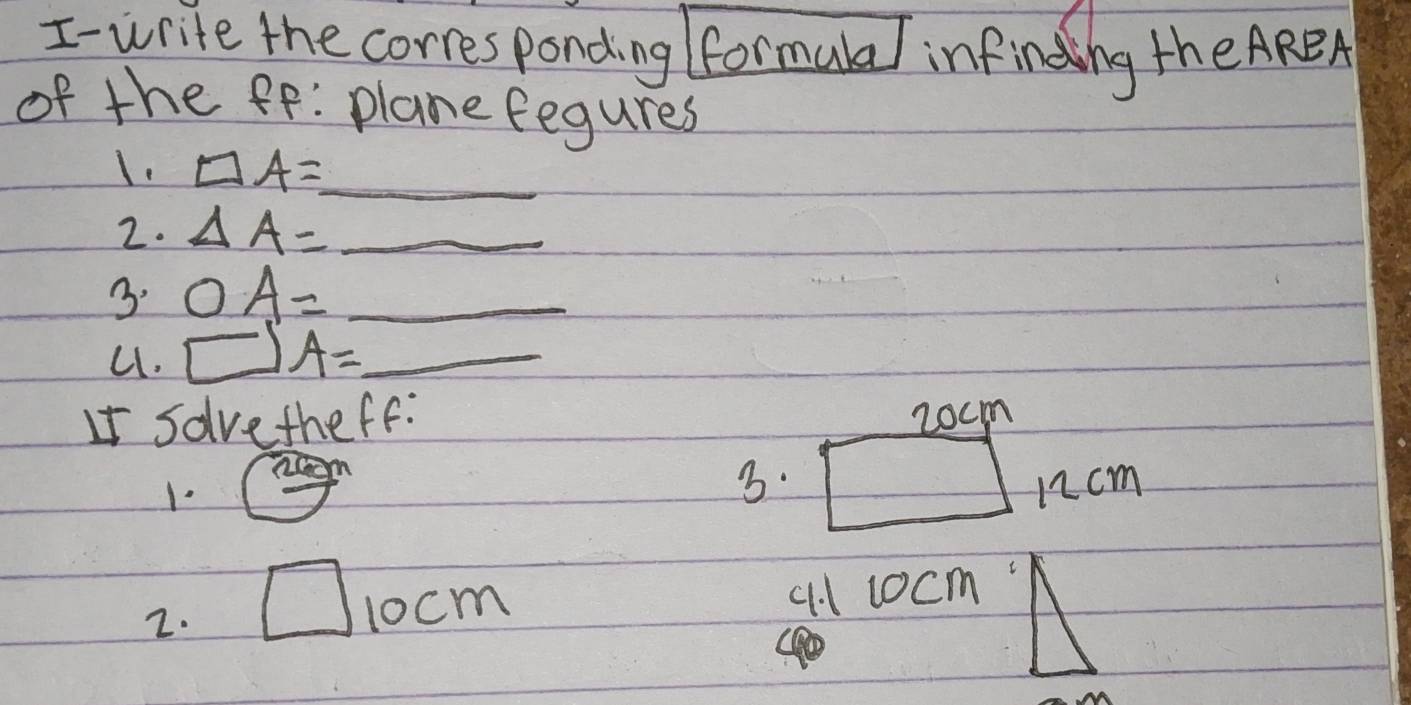 I-write the corresponding formula in finding the AREA
of the ff: plane fegures
1. A=
2. A=
3. A=
4. A=
II Solve the ff:
20cm
1.
3. 12cm
2. 10cm
4. 10cm